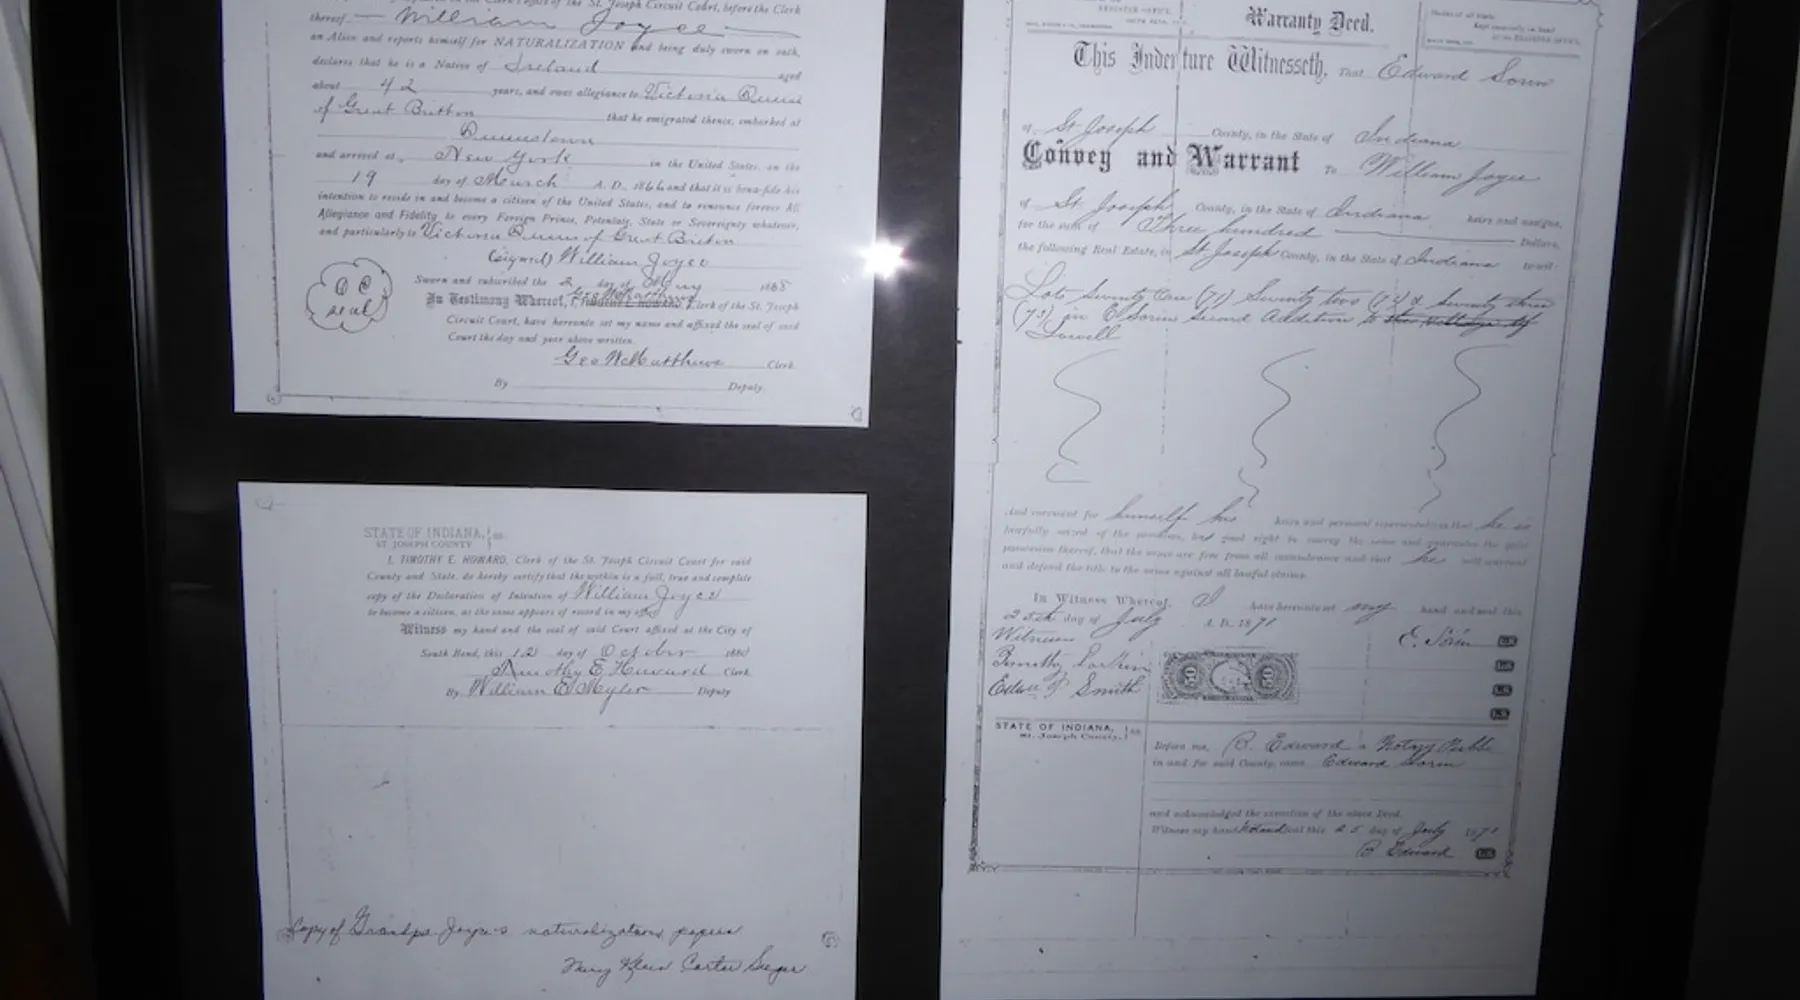 Clerk's office of the St. Joseph Circuit Court, before the Clerk
thereof — William Joyce —
an Alien and reports himself for NATURALIZATION and being duly sworn on oath,
declares that he is a Native of Ireland aged
about 42 years, and owes allegiance to Victoria Queen
of Great Britton that he emigrated thence, embarked at
Queenstown
and arrived at New York in the United States, on the
19 day of March A. D., 1866 and that it is bona-fide his
intention to reside in and become a citizen of the United States, and to renounce forever All
Allegiance and Fidelity to every Foreign Prince, Potentate, State or Sovereignty whatever,
and particularly to Victoria Queen of Great Britton
(signed) William Joyce
Sworn and subscribed the 2 day of
In Testimony Whereof, I, Clerk of the St. Joseph
Circuit Court, have hereunto set my name and affixed the seal of said
Court the day and year above written.
Geo W Matthews Clerk
By Deputy.
seal
STATE OF INDIANA, } ss.
ST. JOSEPH COUNTY
I, TIMOTHY E. HOWARD, Clerk of the St. Joseph Circuit Court for said
County and State, do hereby certify that the within is a full, true and complete
copy of the Declaration of Intention of William Joyce
to become a citizen, as the same appears of record in my office
Witness my hand and the seal of said Court affixed at the City of
South Bend, this 12 day of October
Timothy E. Howard Clerk
By William E Meyler Deputy
Copy of Grandpa Joyce's naturalization papers
Mary Carter
REGISTER OFFICE,
Warranty Deed.
This Indenture Witnesseth, That Edward Sorin
of St Joseph County, in the State of Indiana
Convey and Warrant To William Joyce
of St Joseph County, in the State of Indiana heirs and assigns,
for the sum of Three hundred Dollars,
the following Real Estate, in St Joseph County, in the State of Indiana to wit:
Lots Seventy One (71) Seventy two (72) & Seventy three
(73) in E Sorins Second Addition to the Village of
Lowell
And covenant for himself his heirs and personal representatives that he is
lawfully seized of the premises, has good right to convey the same and guarantee the quiet
possession thereof, that the same are free from all incumbrance and that he will warrant
and defend the title to the same against all lawful claims.
In Witness Whereof, I have hereunto set my hand and seal this
25th day of July A. D. 1871
Witness E. Sorin
Timothy Larkin
Smith
50 50
STATE OF INDIANA, } ss.
St. Joseph County.
Before me, B. Edward a Notary Public
in and for said County, came Edward Sorin
and acknowledged the execution of the above Deed.
Witness my hand Notarial seal this 25 day of July 1871